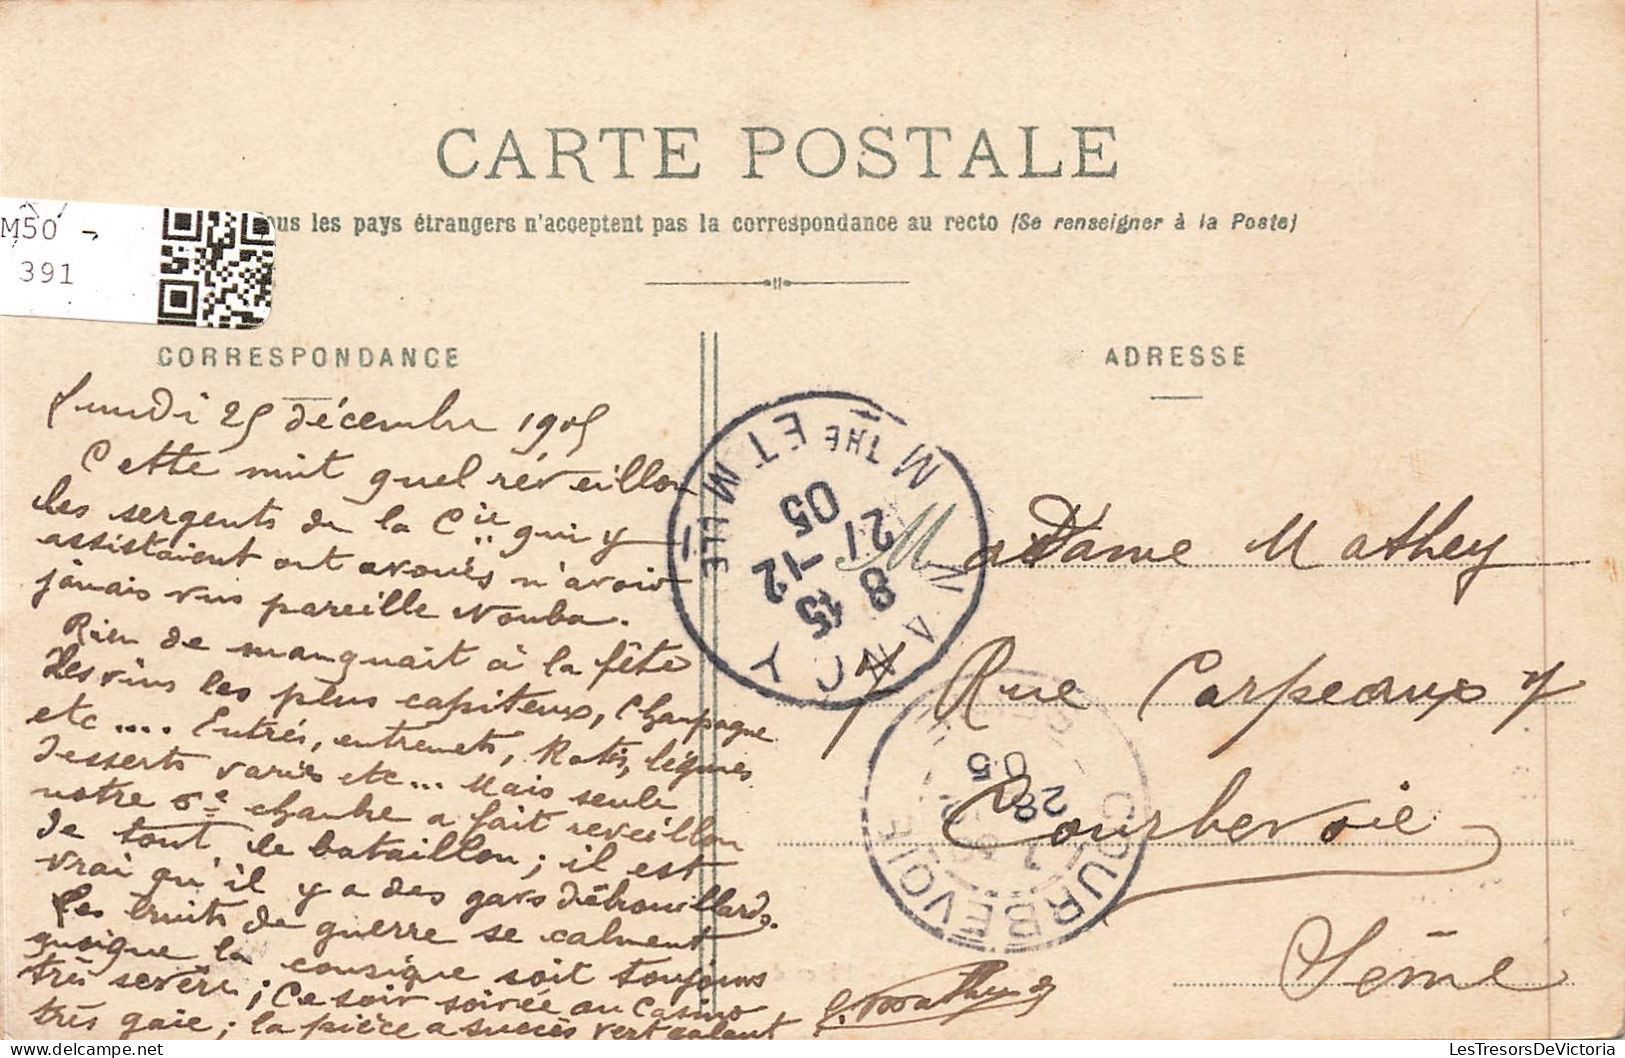 CARTE POSTALE
ous les pays étrangers n'acceptent pas la correspondance au recto (Se renseigner à la Poste)
M50 -
391
CORRESPONDANCE
Lundi 25 décembre 1905
Cette nuit quel réveillon
les sergents de la Cie qui y
assistaient ont avoués n'avoir
jamais vus pareille Nouba.
Rien de manquait à la fête
Les vins les plus capiteux, Champagne
etc .... Entrées, entremets, Rotis, légumes
desserts variés etc... Mais seule
notre 6e chambre a fait reveillon
de tout le bataillon; il est
vrai qu'il y a des gars débrouillards.
Les bruits de guerre se calment
quoique la consigne soit toujours
très sevère; Ce soir soirée au Casino
très gaie; la pièce a succès vert galant
ADRESSE
NANCY
MTHE ET MLLE
8 15
27 -12
05
Madame Mathey
7 Rue Carpeaux 7
COURBEVOIE
28
05
Courbevoie
Seine
LesTresorsDeVictoria